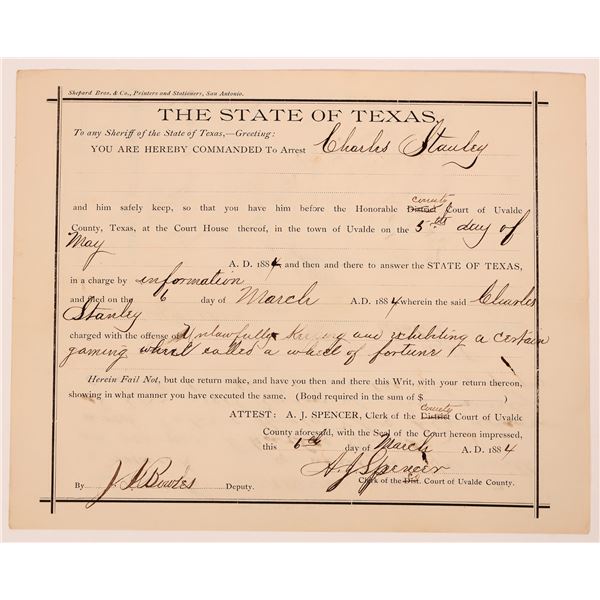 Shepard Bros. & Co., Printers and Stationers, San Antonio.
THE STATE OF TEXAS,
To any Sheriff of the State of Texas,—Greeting:
YOU ARE HEREBY COMMANDED To Arrest Charles Stanley
and him safely keep, so that you have him before the Honorable District County Court of Uvalde
County, Texas, at the Court House thereof, in the town of Uvalde on the 5th day of
May
A. D. 1884 and then and there to answer the STATE OF TEXAS,
in a charge by information
and filed on the 6 day of March A.D. 1884 wherein the said Charles
Stanley
charged with the offense of Unlawfully Keeping and exhibiting a certain
gaming wheel called a wheel of fortune
Herein Fail Not, but due return make, and have you then and there this Writ, with your return thereon,
showing in what manner you have executed the same. (Bond required in the sum of $ )
ATTEST: A. J. SPENCER, Clerk of the District County Court of Uvalde
County aforesaid, with the Seal of the Court hereon impressed,
this 6th day of March A. D. 1884
A J Spencer
By J. Bowles Deputy. Clerk of the Dist. Co. Court of Uvalde County.